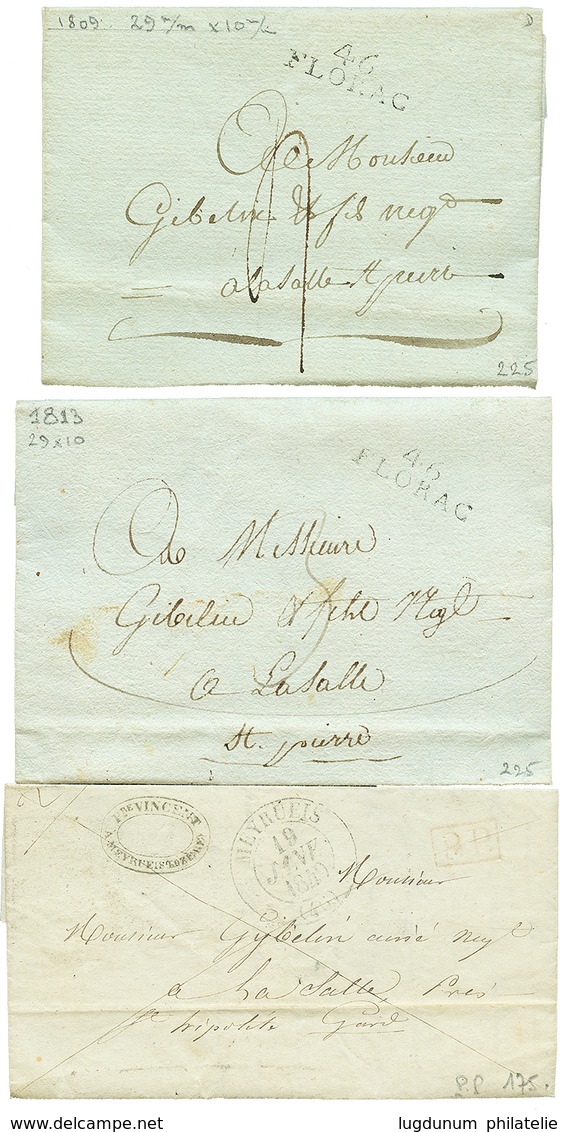 1809 29 m/m x 10 m/m D
46
FLORAC
A Monsieur
Gibelin & fils negt
a Lasalle St pierre
225
1813
29 x 10
46
FLORAC
A Messieurs
Gibelin et fils Negt
A Lasalle
St. pierre
225
Fre VINCENT
A MEYRUEIS (LOZERE)
MEYRUEIS
19
JANV
P.P.
Monsieur
Monsieur Gibelin ainé negt
a La Salle, Près
St hipolite Gard
P.P 175.
lugdunum philatelie